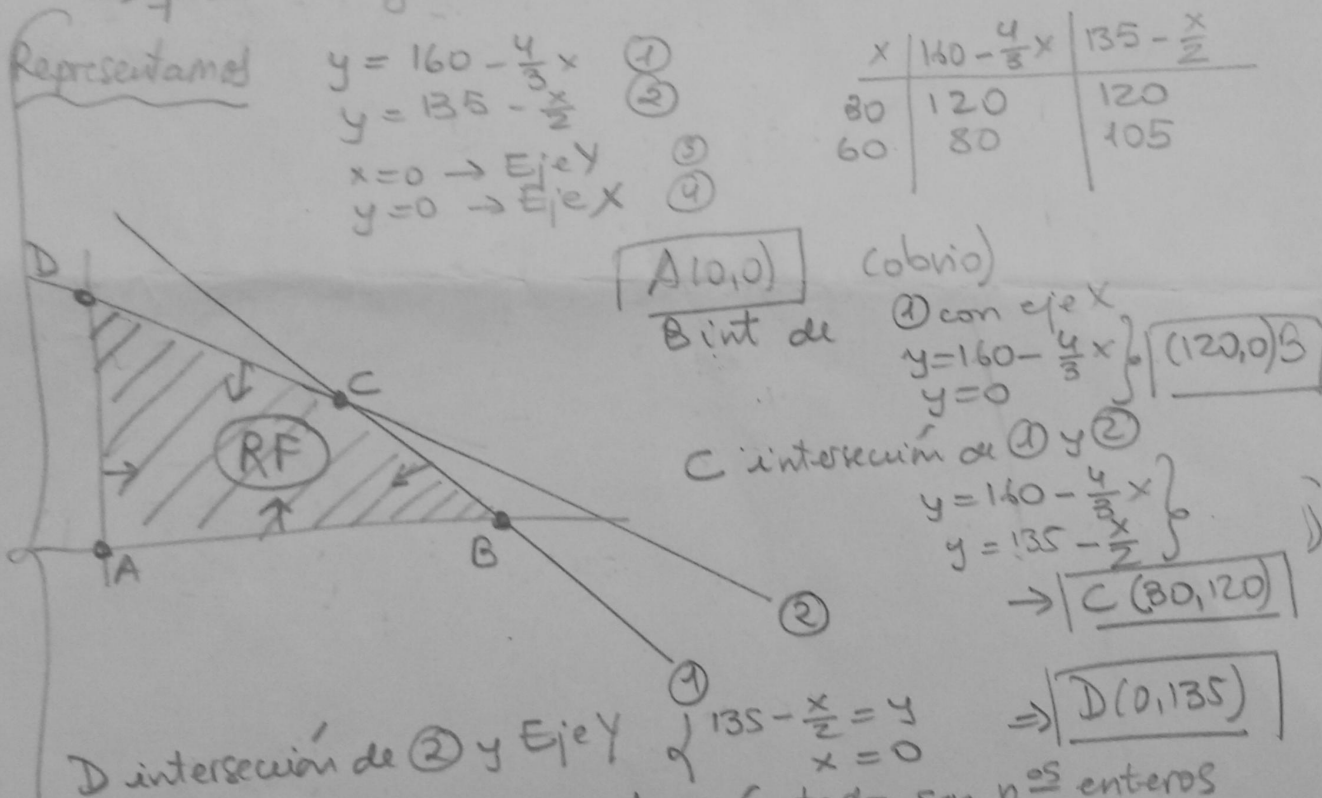 Representamos
y = 160 - 4/3 x ①
y = 135 - x/2 ②
x=0 → Eje Y ③
y=0 → Eje X ④
x | 160 - 4/3 x | 135 - x/2
30 | 120 | 120
60 | 80 | 105
A(0,0) (obvio)
B int de ① con eje X
y=160 - 4/3 x
y=0
(120,0)B
C interseción de ① y ②
y=160 - 4/3 x
y = 135 - x/2
→ C (30,120)
D
C
RF
A
B
②
①
D interseción de ② y Eje Y { 135 - x/2 = y
x = 0
⇒ D(0,135)
son nºs enteros